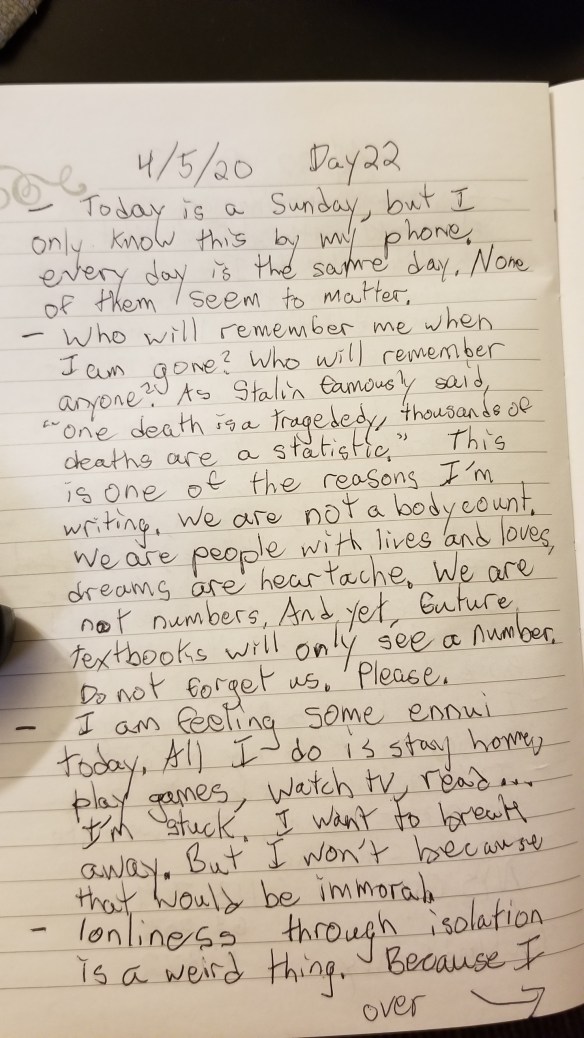 4/5/20 Day 22
- Today is a Sunday, but I
only know this by my phone.
every day is the same day. None
of them seem to matter.
- Who will remember me when
I am gone? Who will remember
anyone? As Stalin famously said,
"one death is a tragededy, thousands of
deaths are a statistic." This
is one of the reasons I'm
writing. We are not a bodycount.
We are people with lives and loves,
dreams are heartache. We are
not numbers. And yet, future
textbooks will only see a number.
Do not forget us. Please.
- I am feeling some ennui
today. All I do is stay home,
play games, watch tv, read...
I'm stuck. I want to break
away. But I won't because
that would be immoral.
- lonliness through isolation
is a weird thing. Because I
over →